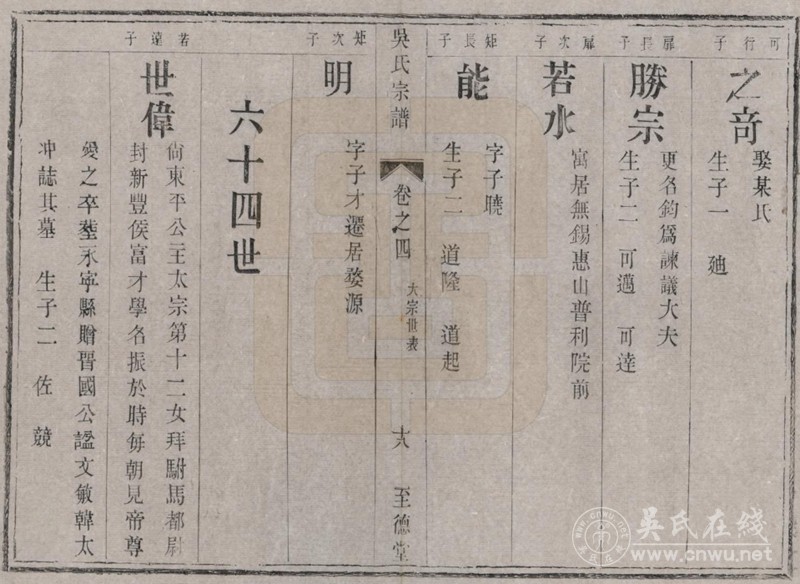 可行子
之奇
娶某氏
生子一　廸
扉長子
勝宗
更名鈞爲諫議大夫
生子二　可邁　可達
扉次子
若水
寓居無錫惠山普利院前
矩長子
能
字子曉
生子二　道隆　道起
吳氏宗譜
卷之四
大宗世表
十八
至德堂
矩次子
明
字子才遷居婺源
六十四世
若遠子
世偉
尙東平公主太宗第十二女拜駙馬都尉
封新豐侯富才學名振於時每朝見帝尊
愛之卒塟永寧縣贈晉國公謚文敏韓太
冲誌其墓　生子二　佐　競
吳氏在线
www.cnwu.net